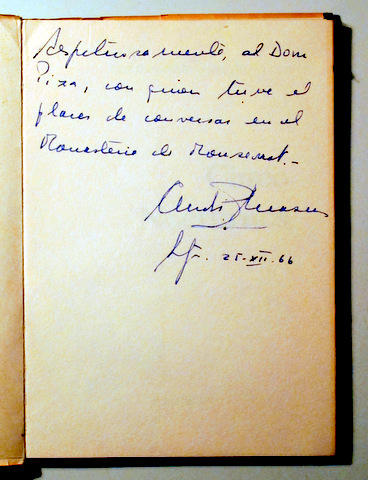 Respetuosamente, al Dom
Piza, con quien tuve el
placer de conversar en el
Monasterio de Monserrat.-
25-XII-66